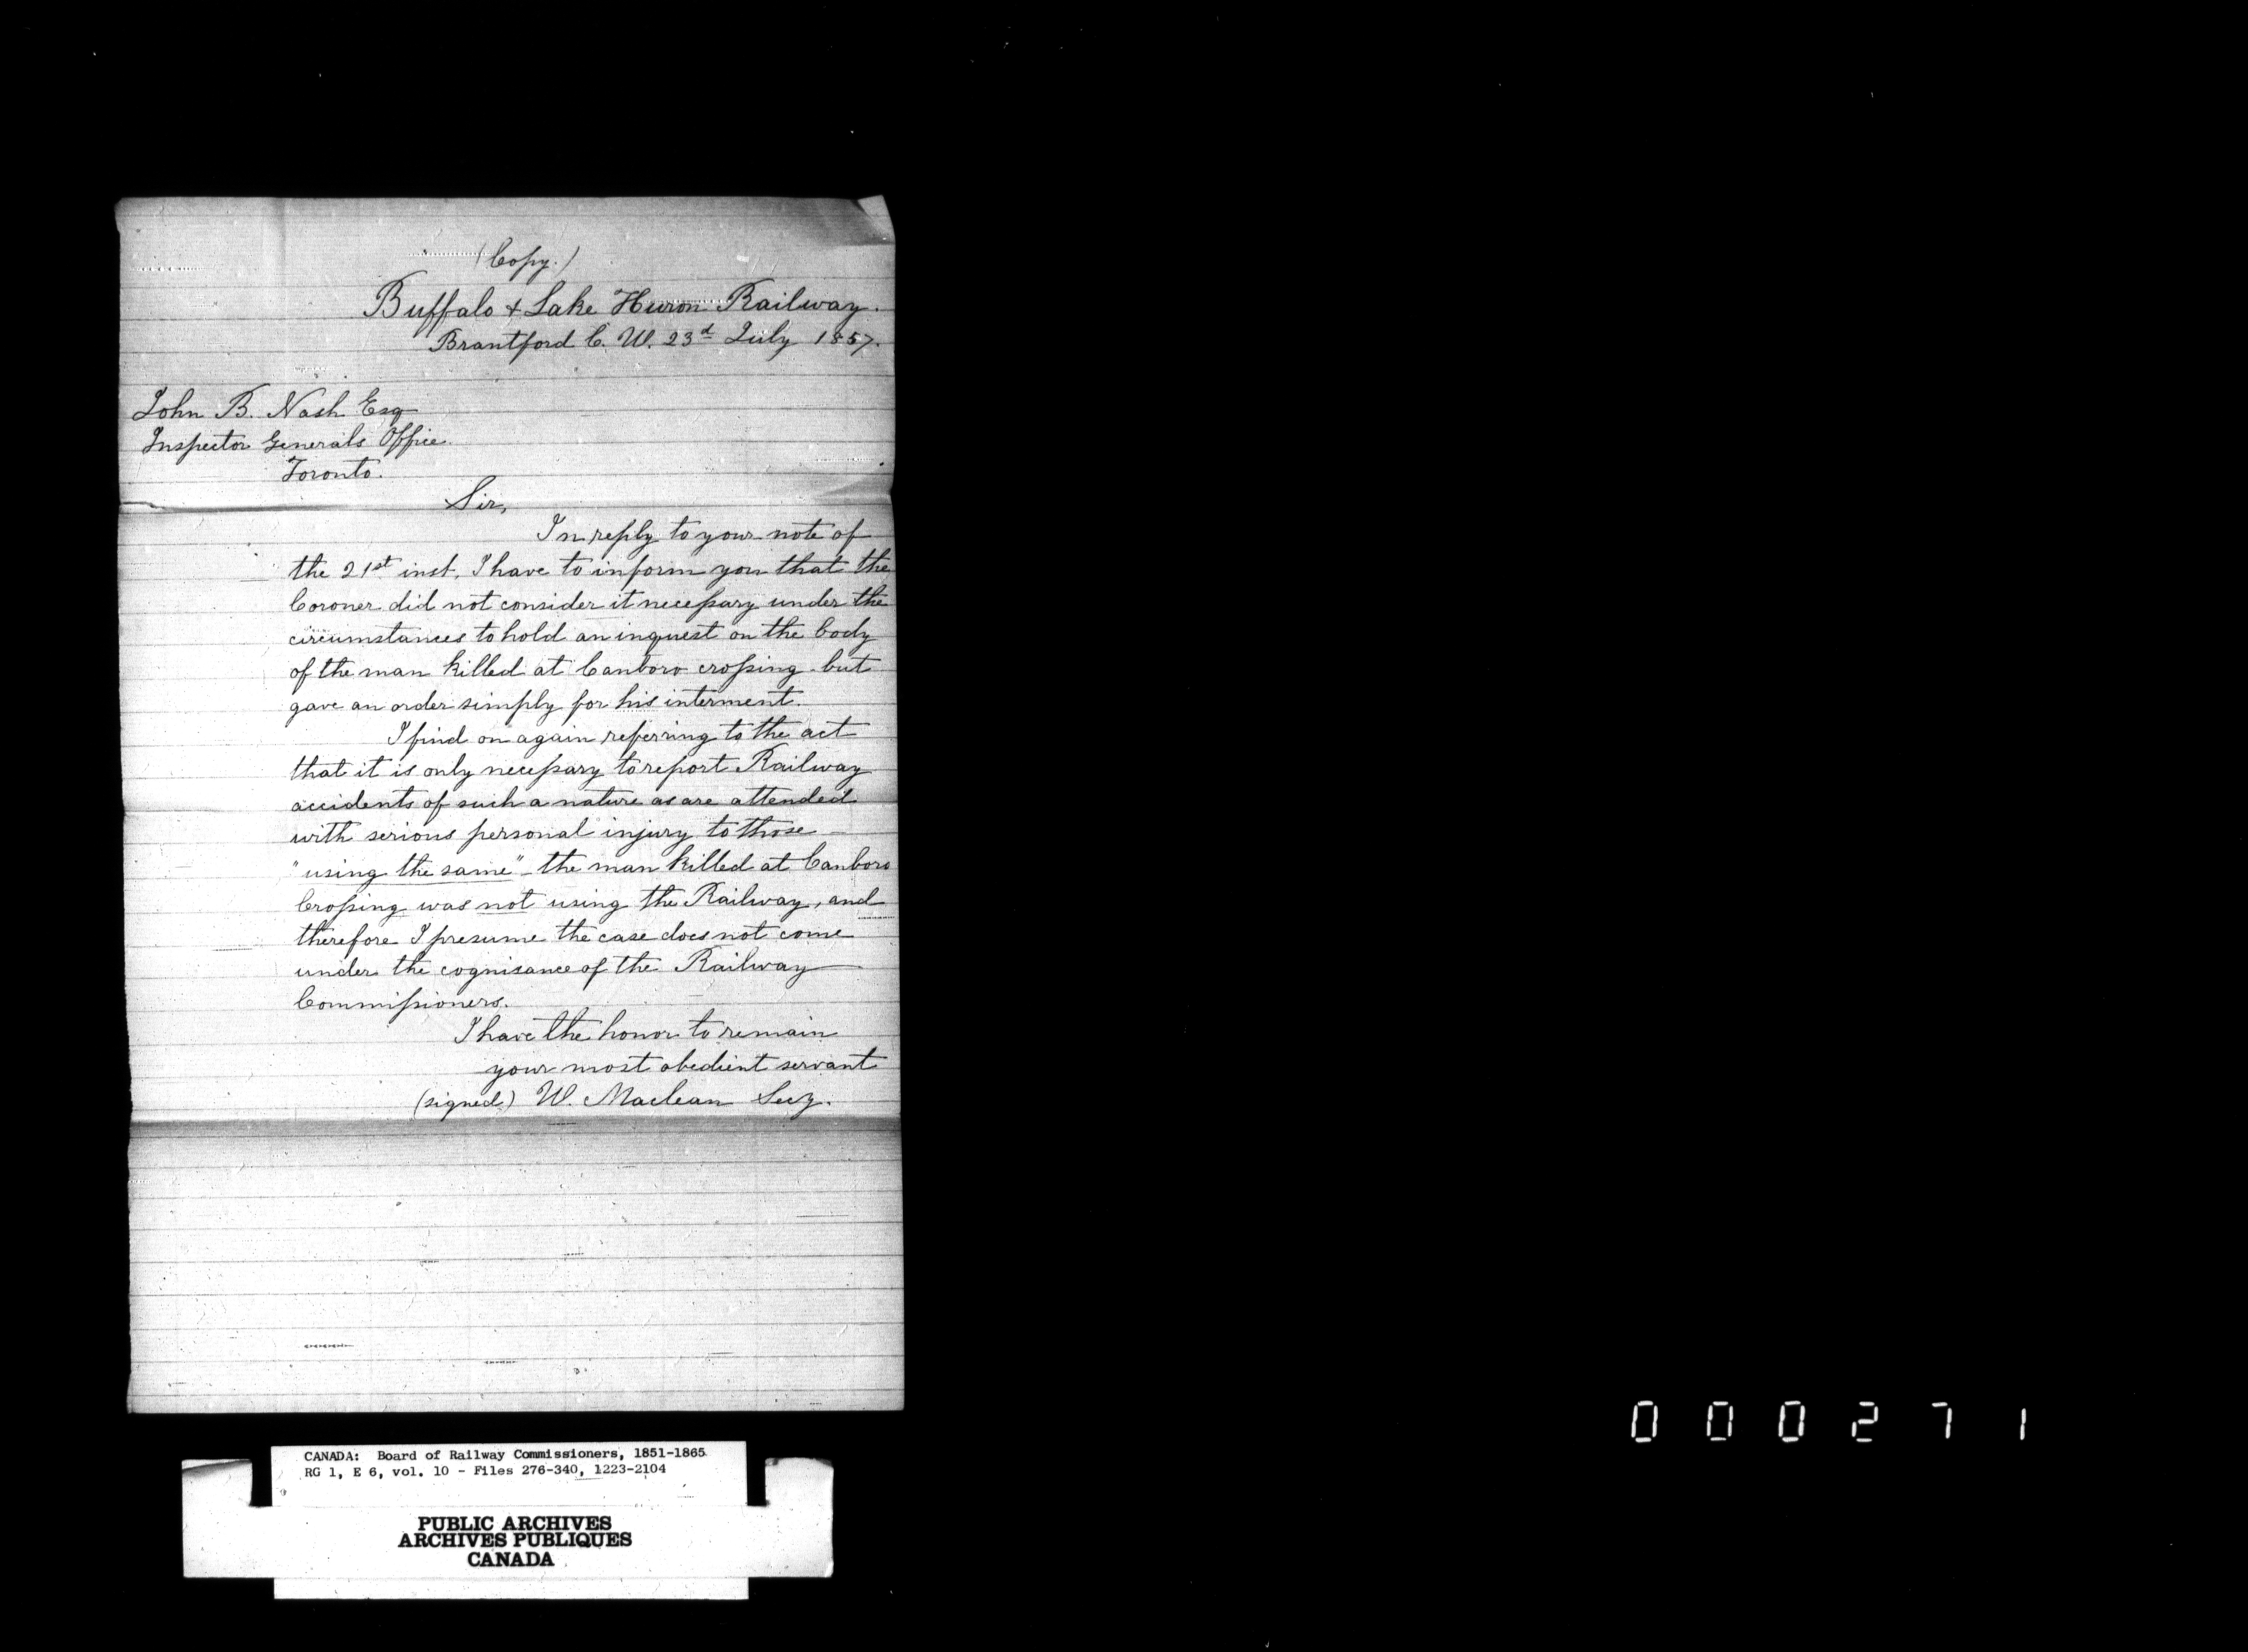 (Copy.)
Buffalo & Lake Huron Railway.
Brantford C. W. 23d July 1857.
John B. Nash Esq
Inspector Generals Office.
Toronto.
Sir,
In reply to your note of
the 21st inst. I have to inform you that the
Coroner did not consider it necessary under the
circumstances to hold an inquest on the body
of the man killed at Canboro crossing but
gave an order simply for his interment.
I find on again referring to the act
that it is only necessary to report Railway
accidents of such a nature as are attended
with serious personal injury to those
"using the same" - the man killed at Canboro
Crossing was not using the Railway, and
therefore I presume the case does not come
under the cognisance of the Railway
Commissioners.
I have the honor to remain
your most obedient servant
(signed) W. Maclean Secy.
CANADA: Board of Railway Commissioners, 1851-1865
RG 1, E 6, vol. 10 - Files 276-340, 1223-2104
PUBLIC ARCHIVES
ARCHIVES PUBLIQUES
CANADA
000271